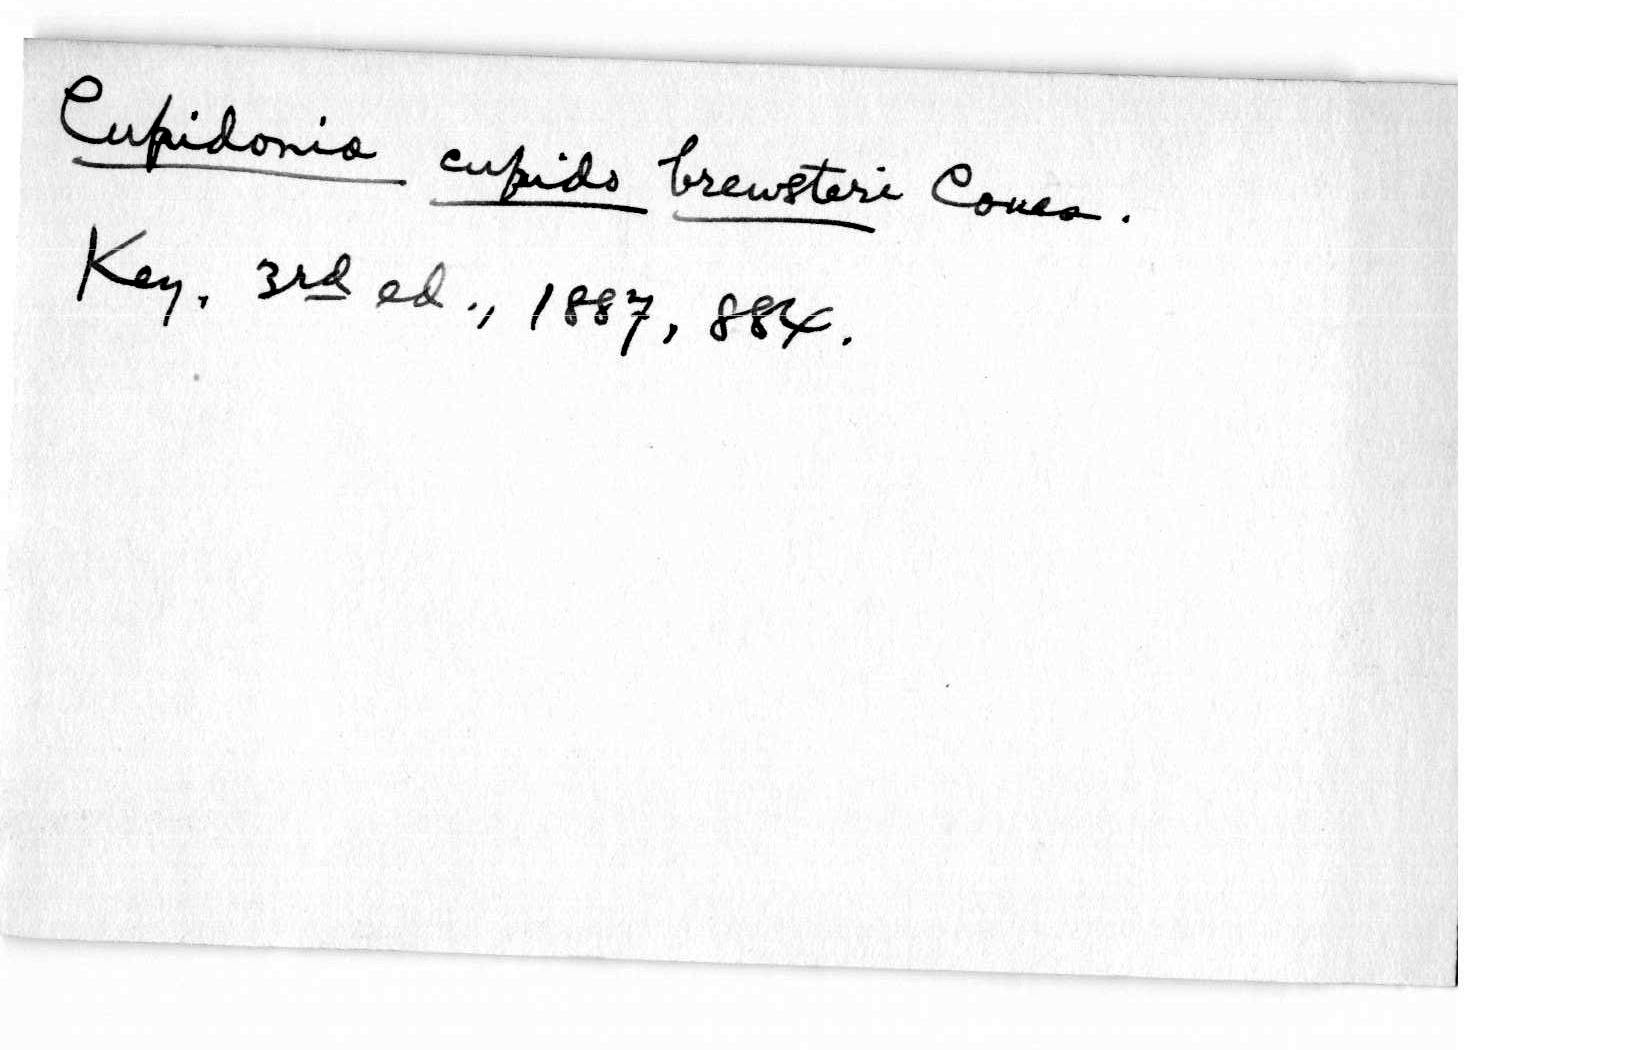 Cupidonia cupido brewsteri Coues.
Key. 3rd ed., 1887, 884.